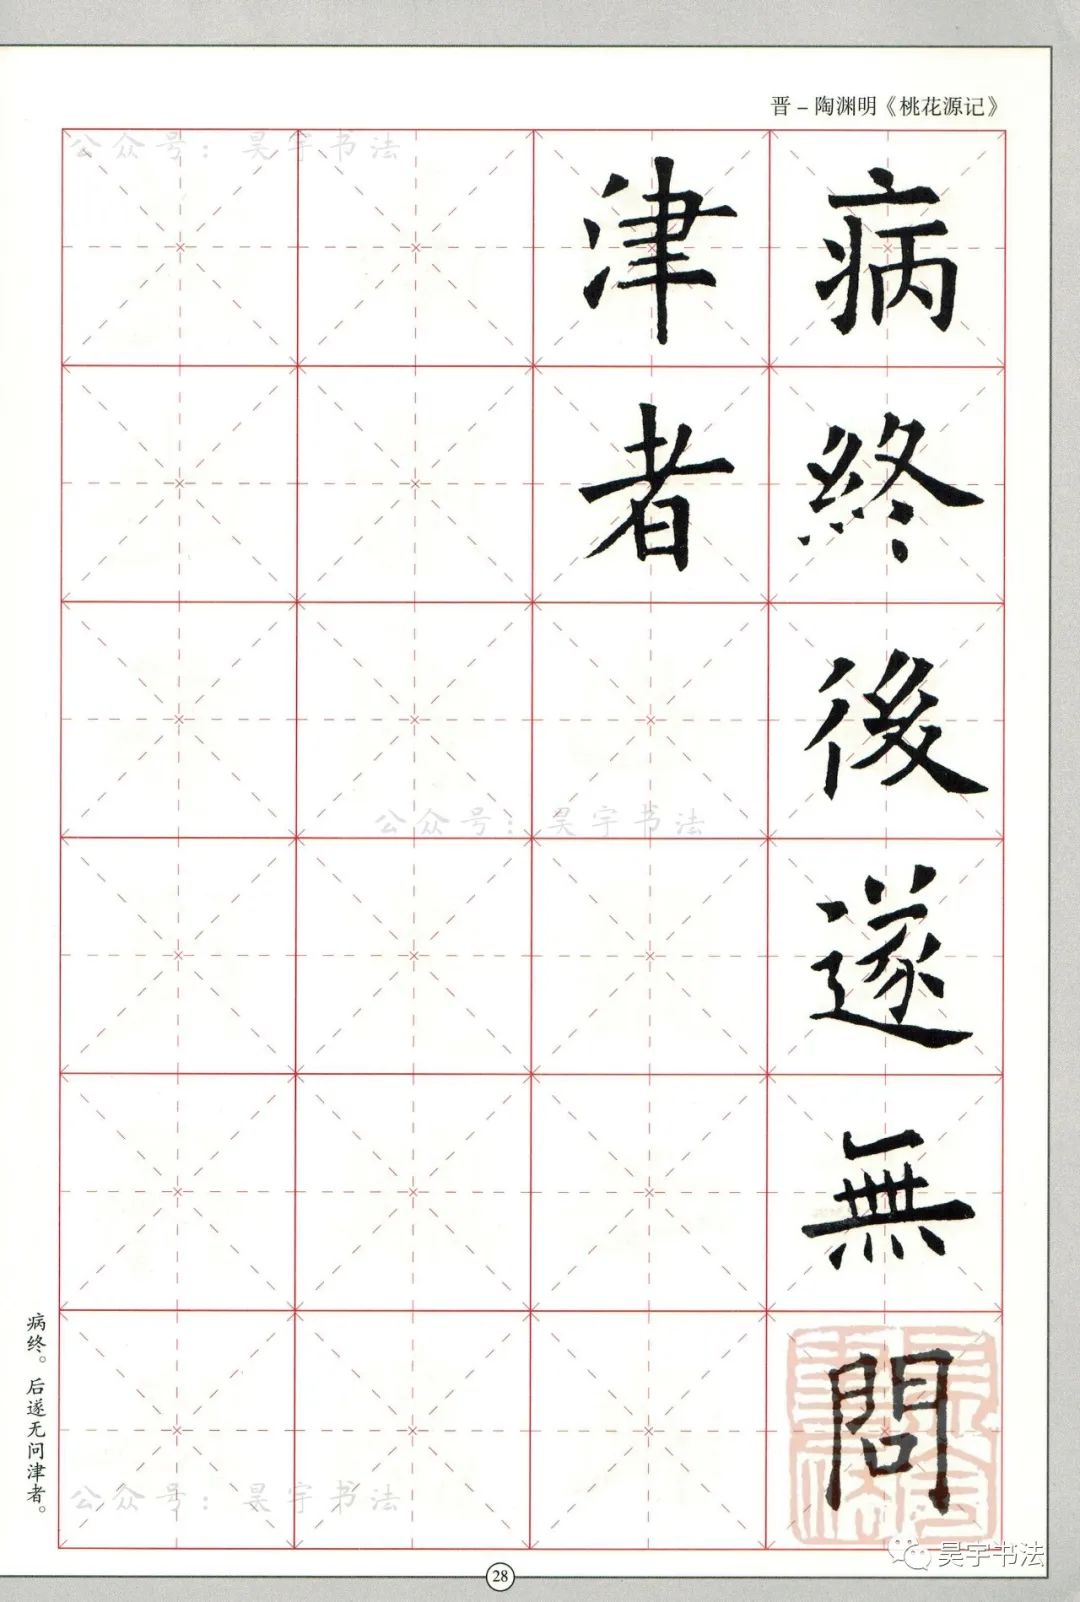 晋－陶渊明《桃花源记》
公众号：昊宇书法
病終後遂無問
津者
公众号：昊宇书法
病终。后遂无问津者。
公众号：昊宇书法
昊宇书法
28